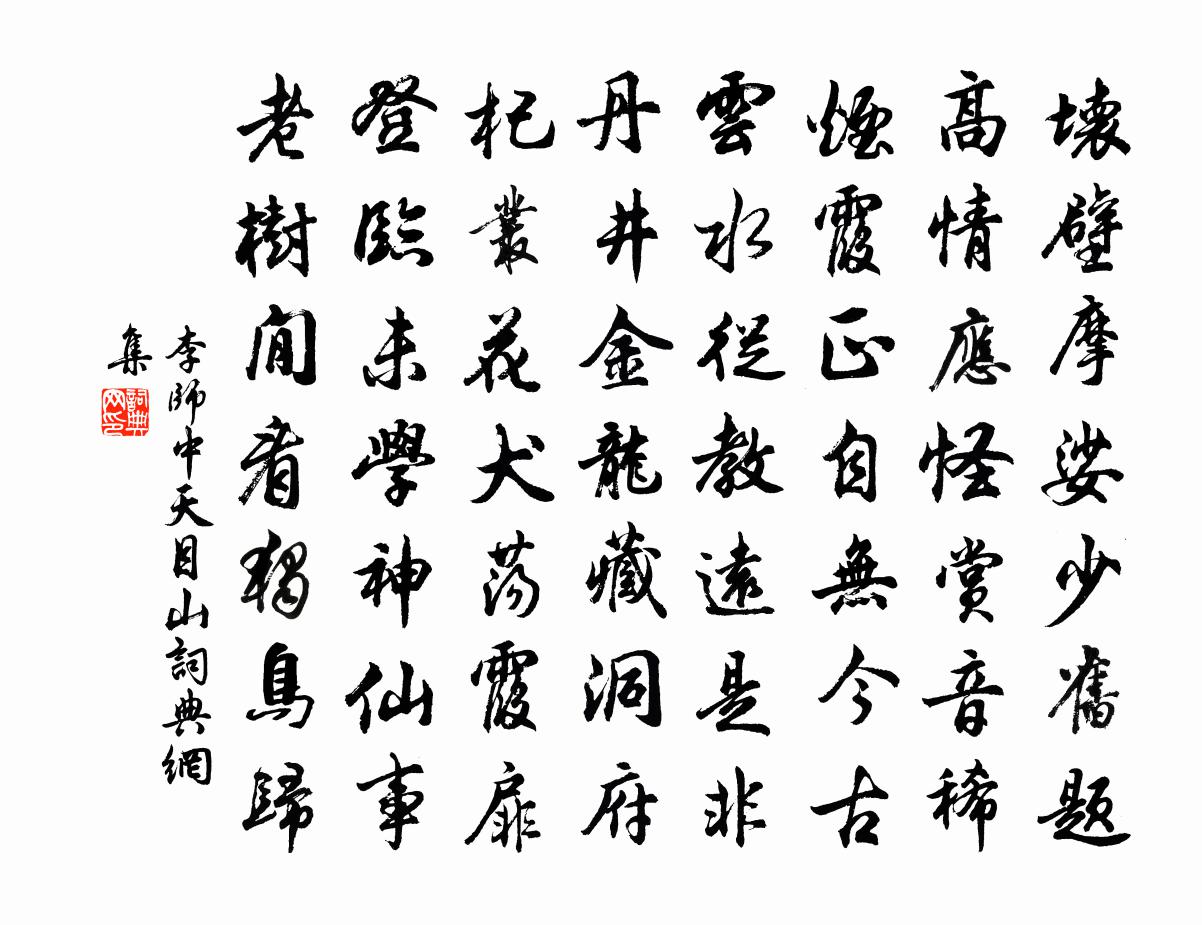 壞壁摩娑少舊題
高情應怪賞音稀
煙霞正自無今古
雲水從教遠是非
丹井金龍藏洞府
杞叢花犬蕩霞扉
登臨未學神仙事
老樹閒看獨鳥歸
李師中天目山詞典網
集
詞典網印